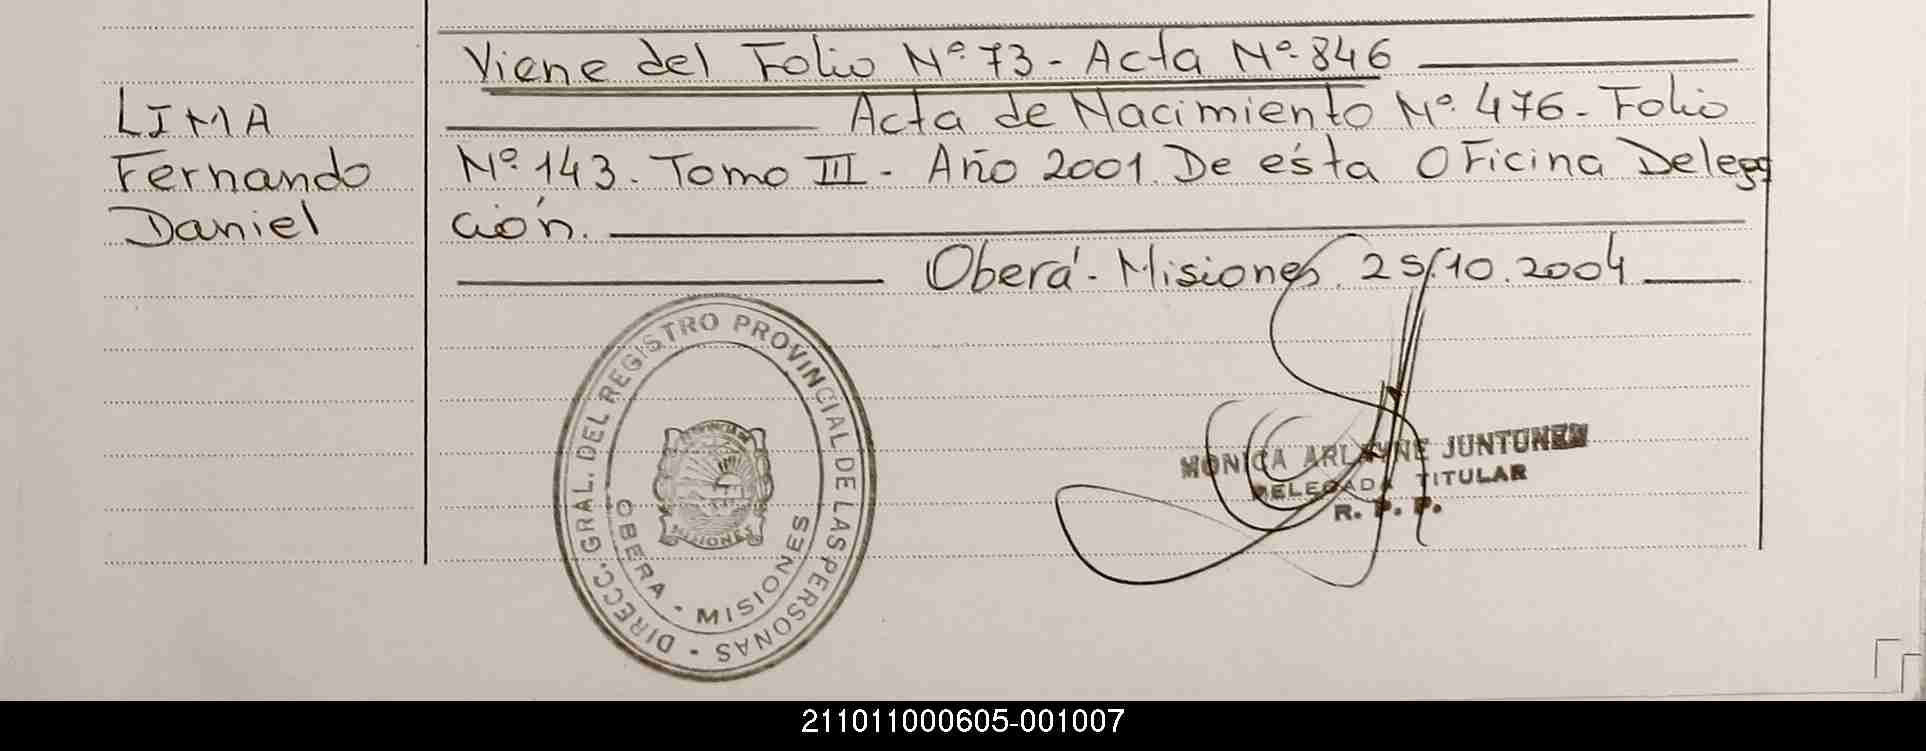 Viene del Folio Nº 73 - Acta Nº 846
LIMA
Fernando
Daniel
Acta de Nacimiento Nº 476 - Folio
Nº 143. Tomo III - Año 2001. De ésta Oficina Delega
ción.
Oberá - Misiones, 25/10.2004
DIRECC. GRAL. DEL REGISTRO PROVINCIAL DE LAS PERSONAS -
OBERA - MISIONES
PROVINCIA DE
MISIONES
MONICA ARLAYNE JUNTUNEN
DELEGADA TITULAR
R. P. P.
211011000605-001007